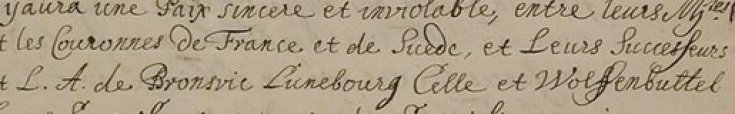 yaura une Paix sincere et inviolable, entre leurs M.tes
et les Couronnes de France et de Suede, et Leurs Successeurs
L. A. de Bronsvic Lunebourg Celle et Wolffenbuttel